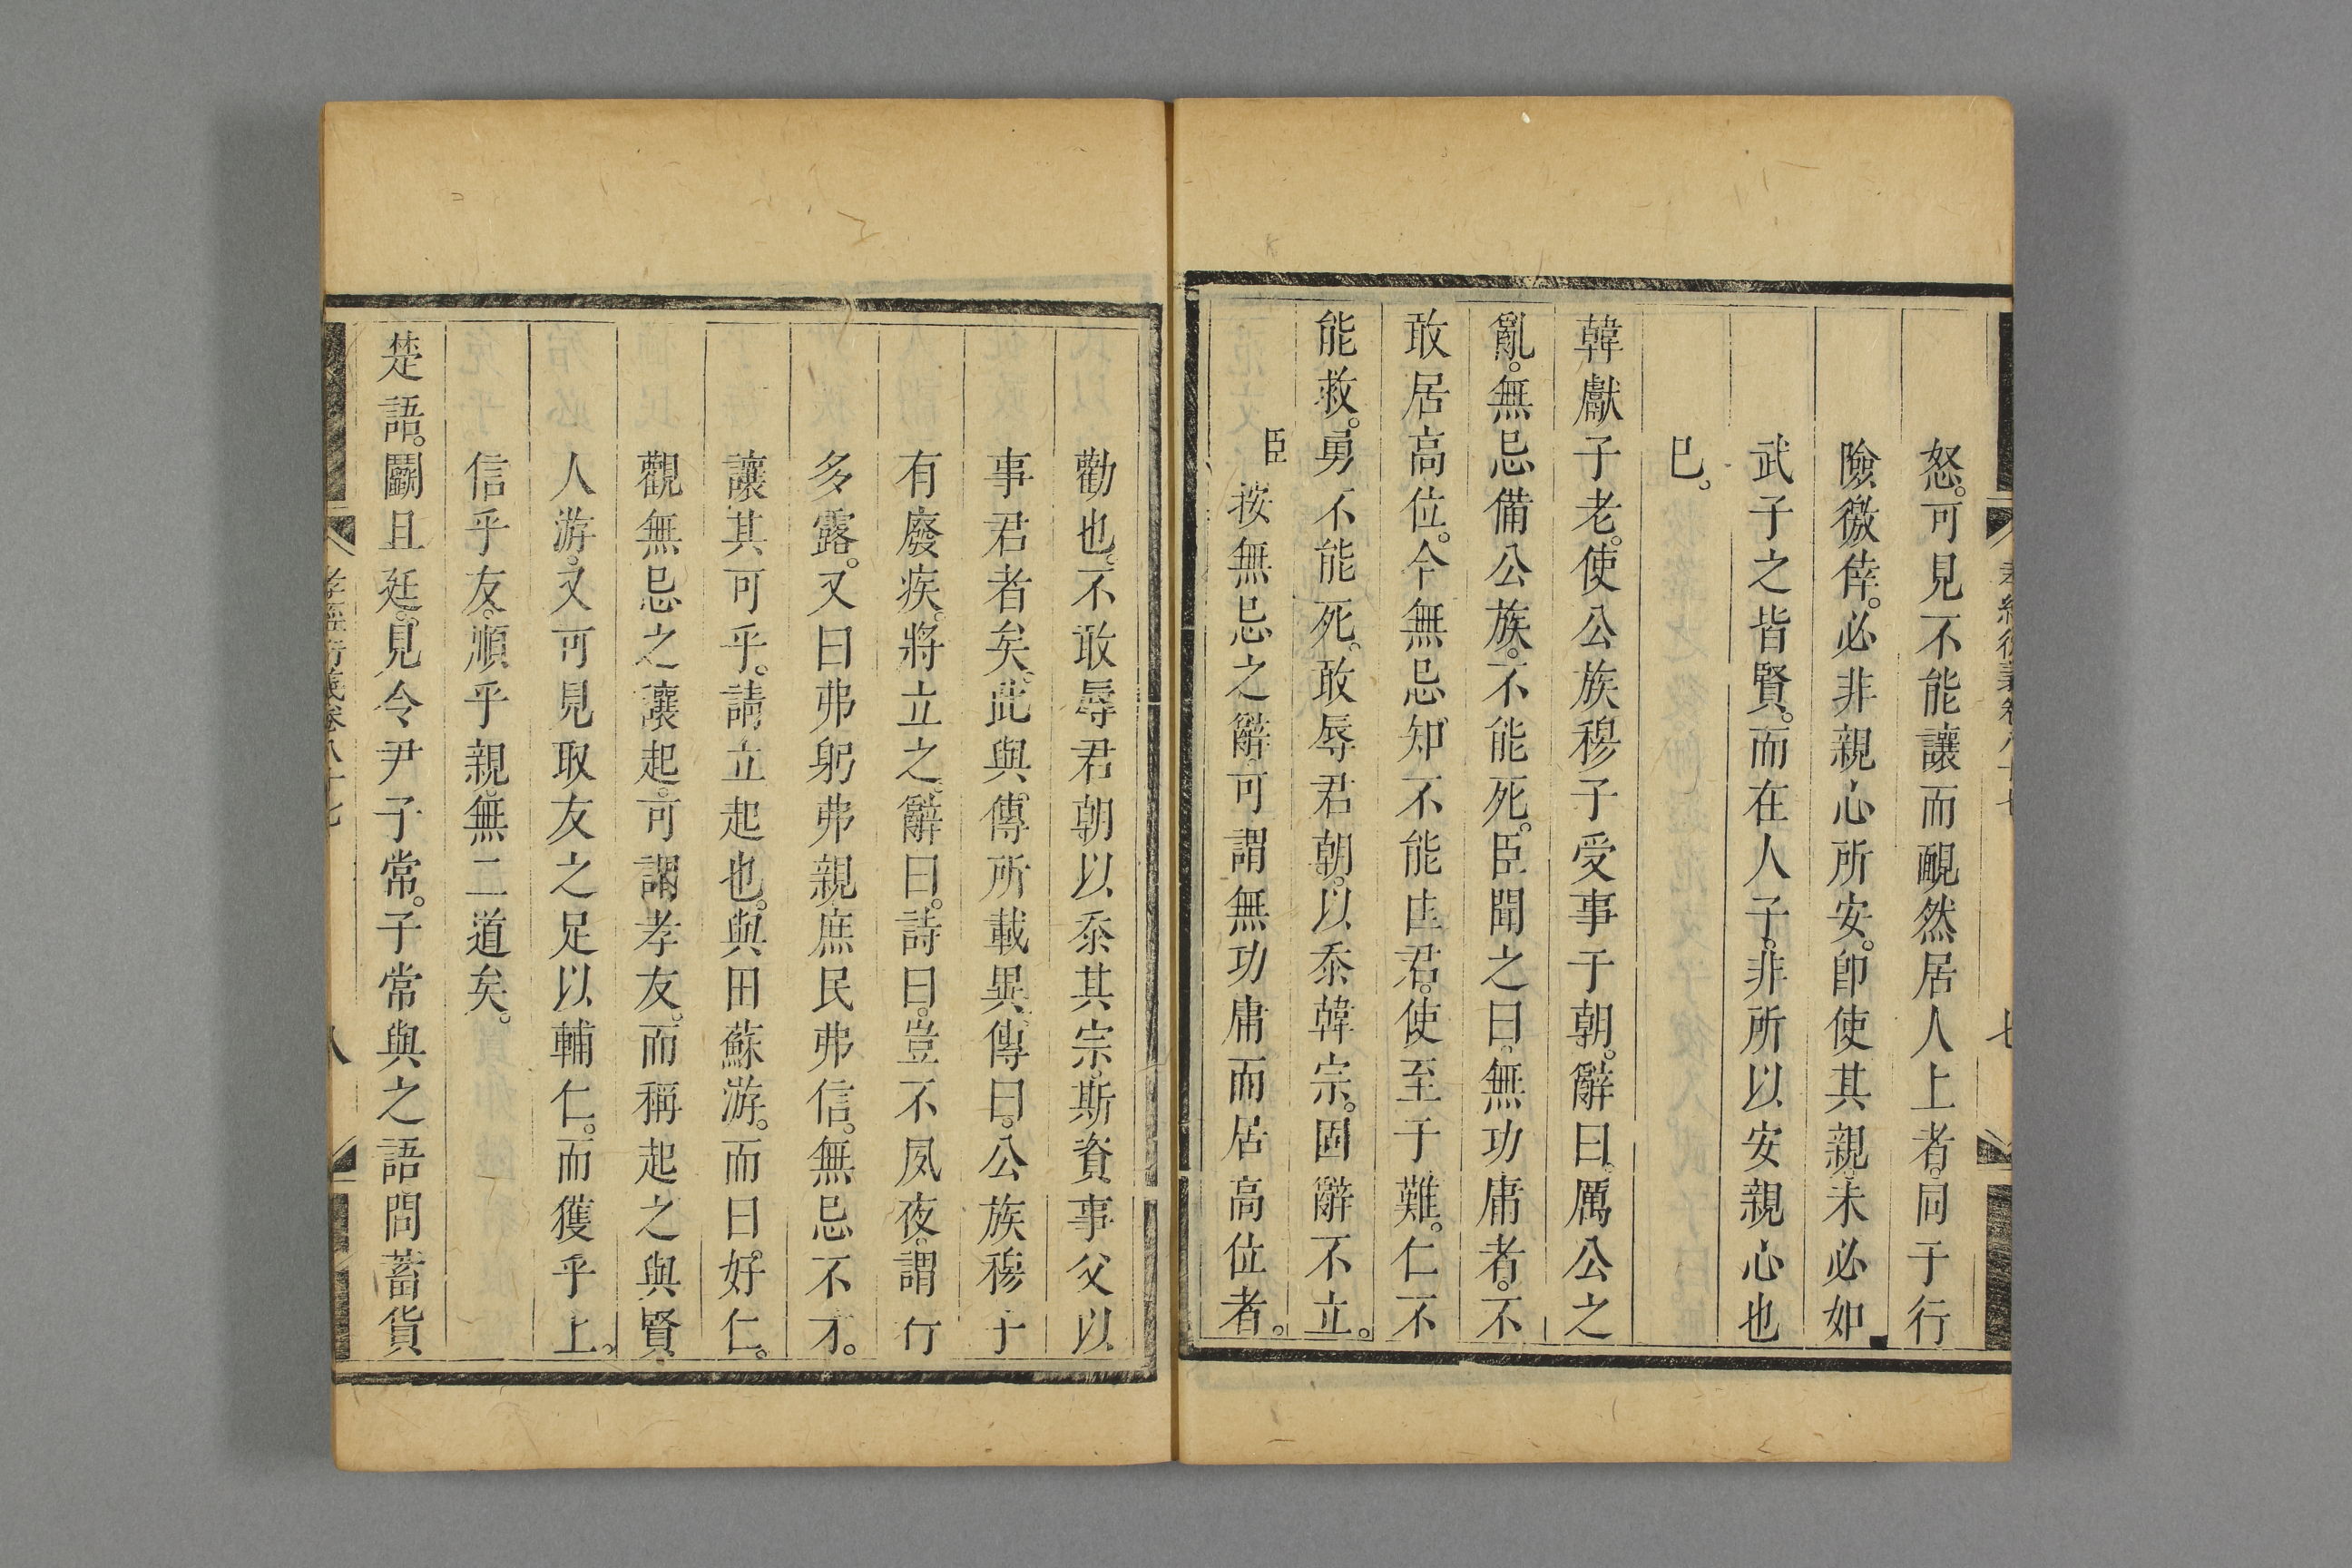 怒。可見不能讓而靦然居人上者。同于行
險徼倖。必非親心所安。卽使其親。未必如
武子之皆賢。而在人子。非所以安親心也
巳。
韓獻子老。使公族穆子受事于朝。辭曰。厲公之
亂。無忌備公族。不能死。臣聞之曰。無功庸者。不
敢居高位。今無忌。知不能匡君。使至于難。仁不
能救。勇不能死。敢辱君朝。以忝韓宗。固辭不立。
臣按無忌之辭。可謂無功庸而居高位者。
勸也。不敢辱君朝以忝其宗。斯資事父以
事君者矣。此與。傳所載異。傳曰。公族穆子
有廢疾。將立之。辭曰。詩曰。豈不夙夜。謂行
多露。又曰弗躬弗親。庶民弗信。無忌不才。
讓其可乎。請立起也。與田蘇游。而曰。好仁。
觀無忌之讓起。可謂孝友。而稱起之與賢
人游。又可見取友之足以輔仁。而獲乎上。
信乎友。順乎親。無二道矣。
楚語。鬭且廷。見令尹子常。子常與之語問蓄貨
孝經衍義卷八十七
八